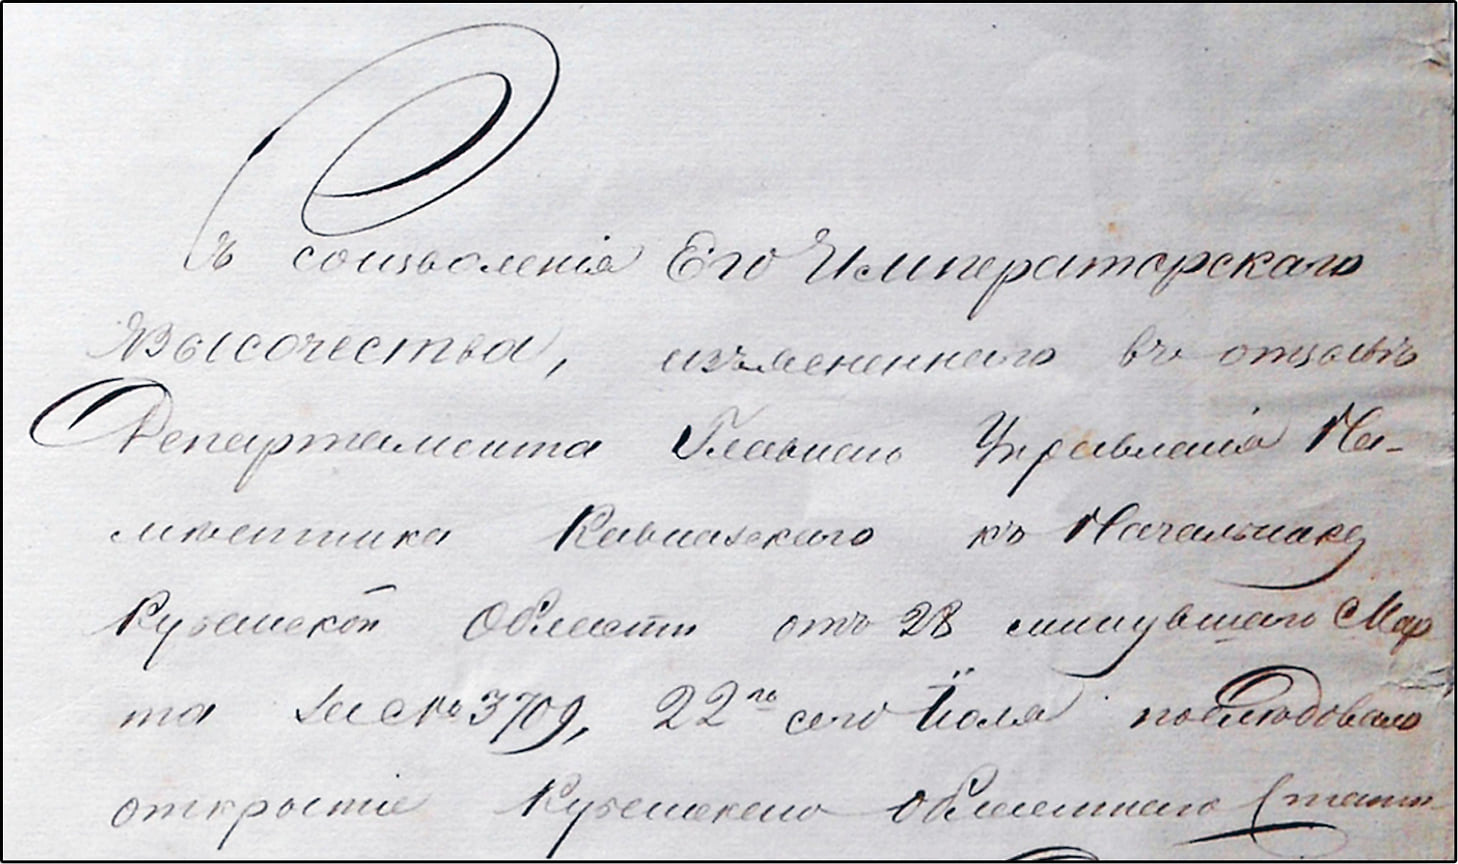 Съ соизволенія Его Императорскаго
Высочества, изъясненнаго въ отзывѣ
Департамента Главнаго Управленія На-
мѣстника Кавказскаго къ Начальнику
Кубанской Области отъ 28 минувшаго Мар
та за № 3709, 22го сего Іюля послѣдовало
открытіе Кубанскаго областнаго Стати